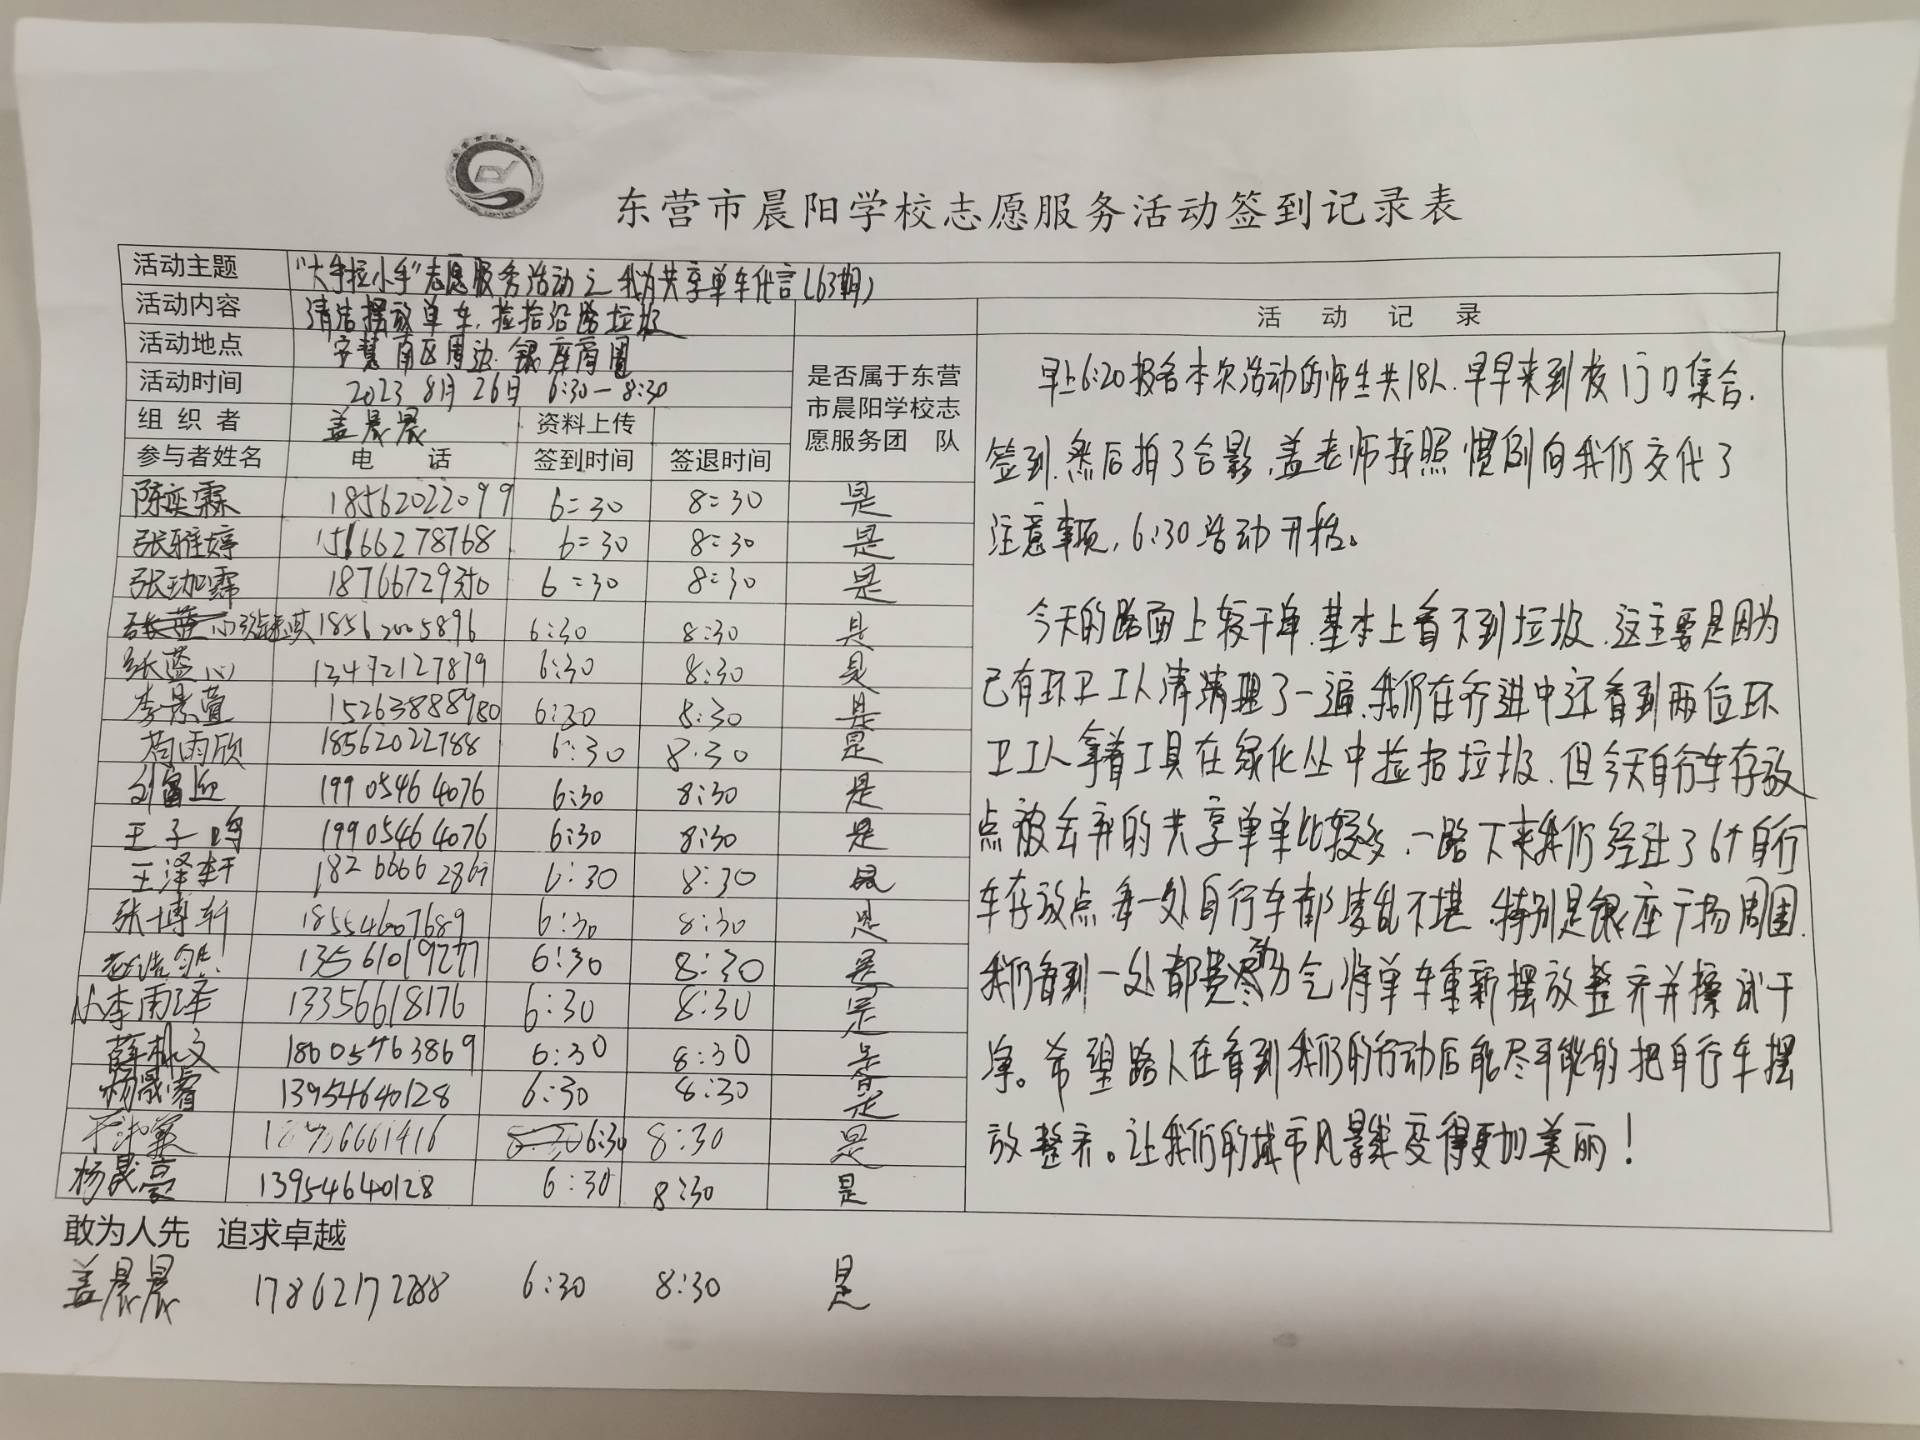 东营市晨阳学校志愿服务活动签到记录表
活动主题 "大手拉小手"志愿服务活动之 我为共享单车代言(63期)
活动内容 清洁摆放单车,捡拾沿路垃圾
活动地点 宁慧南区周边 银座商圈
活动时间 2023 8月 26日 6:30—8:30
组织者 盖晨晨 资料上传
是否属于东营
市晨阳学校志
愿服务团 队
参与者姓名 电 话 签到时间 签退时间
陈奕霖 18562022099 6:30 8:30 是
张雅婷 15166278768 6:30 8:30 是
张珈霈 18766729 6:30 8:30 是
18562005896 6:30 8:30 是
张蓝心 13472127879 6:30 8:30 是
李景萱 15263888980 6:30 8:30 是
周雨欣 18562022788 6:30 8:30 是
刘富迎 19905464076 6:30 8:30 是
王子鸣 19905464076 6:30 8:30 是
王泽轩 6:30 8:30 是
张博轩 18554607689 6:30 8:30 是
13561019277 6:30 8:30 是
李雨泽 13356618176 6:30 8:30 是
薛 文 18605463869 6:30 8:30 是
杨晟睿 13954640128 6:30 8:30 是
6:30 8:30 是
杨晟豪 13954640128 6:30 8:30 是
敢为人先 追求卓越
盖晨晨 17862172288 6:30 8:30 是
活 动 记 录
早上6:20报名本次活动的师生共18人.早早来到校门口集合.
签到.然后拍了合影,盖老师按照惯例向我们交代了
注意事项,6:30活动开始。
今天的路面上较干净.基本上看不到垃圾.这主要是因为
已有环卫工人清清理了一遍.我们在行进中还看到两位环
卫工人拿着工具在绿化丛中捡拾垃圾.但今天自行车存放
点被丢弃的共享单单比较多,一路下来我们经过了6个自行
车存放点每一处自行车都凌乱不堪.特别是银座广场周围.
我们每到一处都费尽力气将单车重新摆放整齐并擦拭干
净。希望路人在看到我们的行动后能尽可能的把自行车摆
放整齐。让我们的城市风景线变得更加美丽!